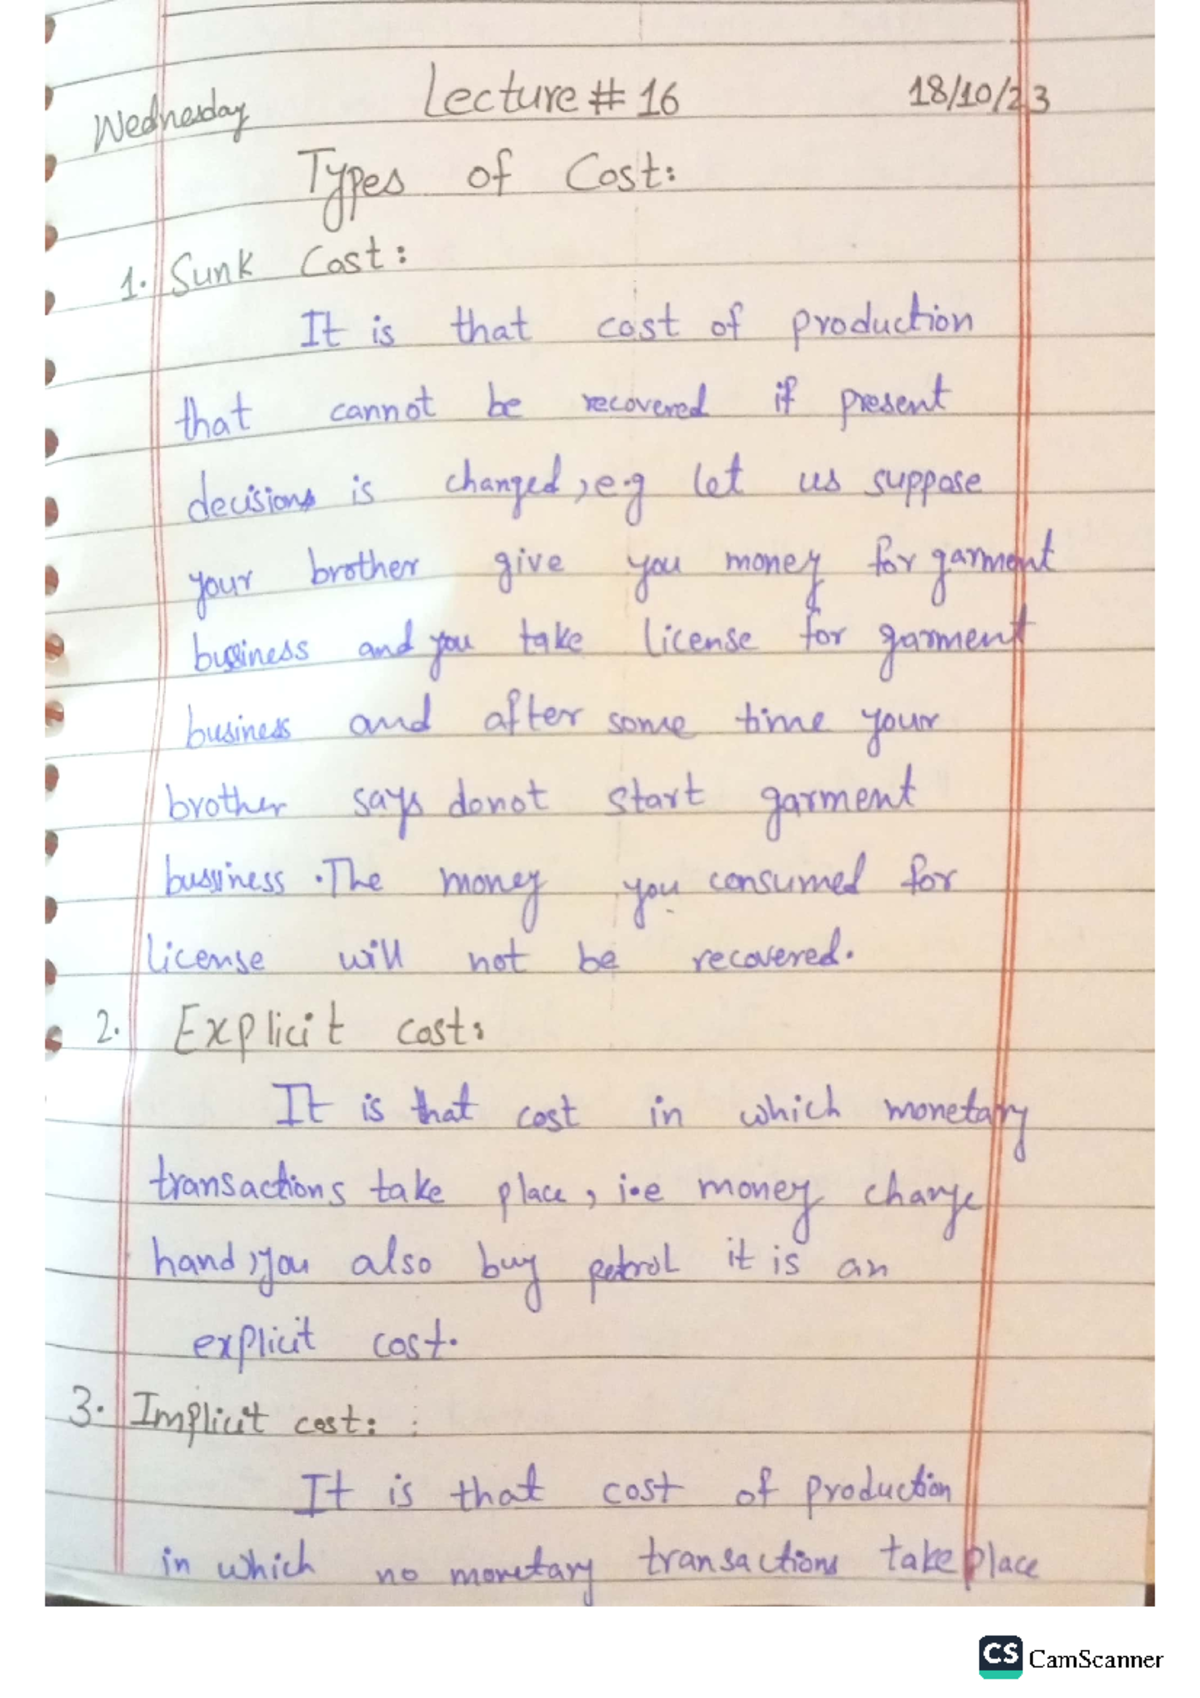 Wednesday Lecture # 16 18/10/23
Types of Cost:
1. Sunk Cost:
It is that cost of production
that cannot be recovered if present
decisions is changed, e.g let us suppose
your brother give you money for garment
bussiness and you take license for garment
business and after some time your
brother says donot start garment
bussiness. The money you consumed for
license will not be recovered.
2. Explicit cost:
It is that cost in which monetary
transactions take place, i.e money change
hand, you also buy petrol it is an
explicit cost.
3. Implicit cost:
It is that cost of production
in which no monetary transactions take place
CS CamScanner